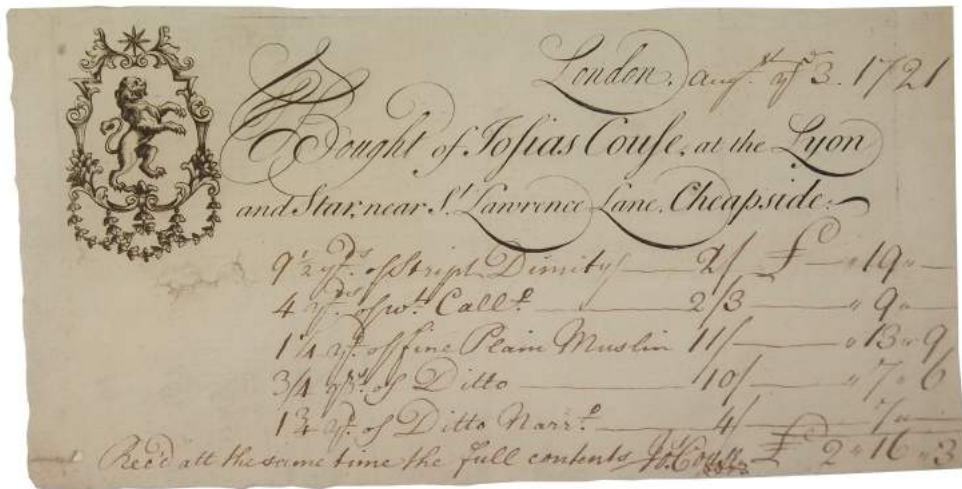 London. Augst. ye 3d. 1721
Bought of Iosias Couse, at the Lyon
and Star, near St. Lawrence Lane. Cheapside.
9 1/2 yds. of Stript Dimity 2/ £ " 19 "
4 yds. of wt. Callo. 2/3 " 9 "
1 1/4 yd. of fine Plain Muslin 11/ " 13 " 9
3/4 yd. of Ditto 10/ " 7 " 6
1 3/4 yd. of Ditto Narro. 4/ " 7 "
Rec'd att the same time the full contents Jo: £ 2 " 16 " 3